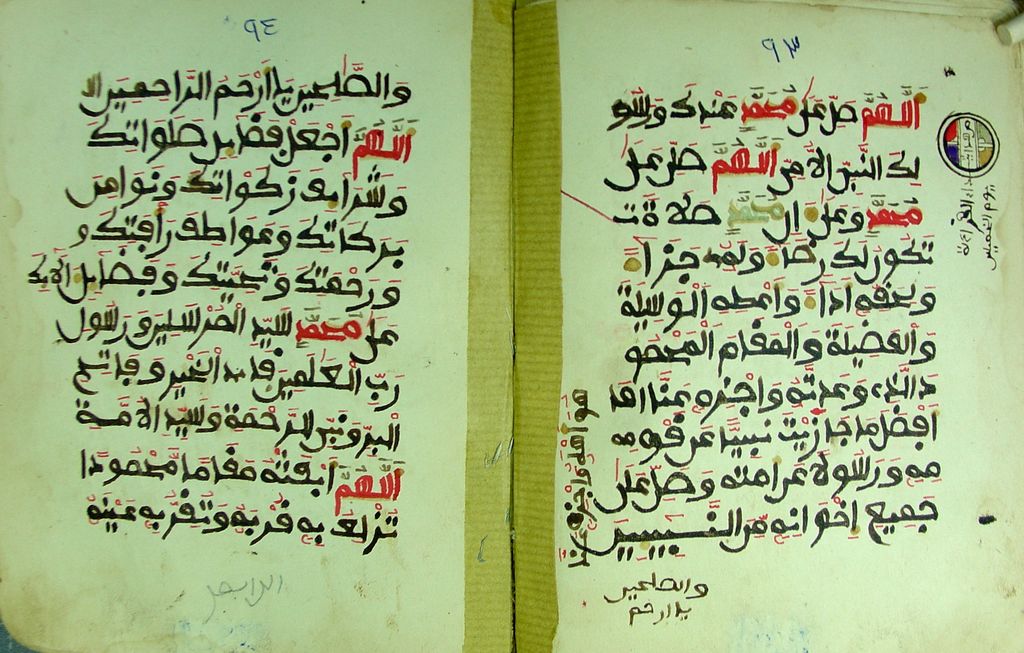 ٩٣
اللهم صل على محمد عبدك ورسو
لك النبي الامي اللهم صل على
محمد وعلى ءال محمد صلاة ت
تكون لك رضاء وله جزاء
ولحقه اداء واعطه الوسيلة
والفضيلة والمقام المحمو
د الذي وعدته واجزه عنا ما
هو اهله واجزه عنا
افضل ما جازيت نبيا عن قومه
مه ورسولا عن امته وصل على
جميع اخوانه من النبيين
والصلحين
يا ارحم
يوم الخميس
٩٤
والصلحين يا ارحم الراحمين
اللهم اجعل فضايل صلواتك
وشرايف زكواتك ونوامى
بركاتك وعواطف رأفتك و
ورحمتك وتحيتك وفضايل الايك
على محمد سيد المرسلين ورسول
رب العلمين قايد الخير وفاتح
البر ونبي الرحمة وسيد الامة
اللهم ابعثه مقاما محمودا
تزلف به قربه وتقر به عينه